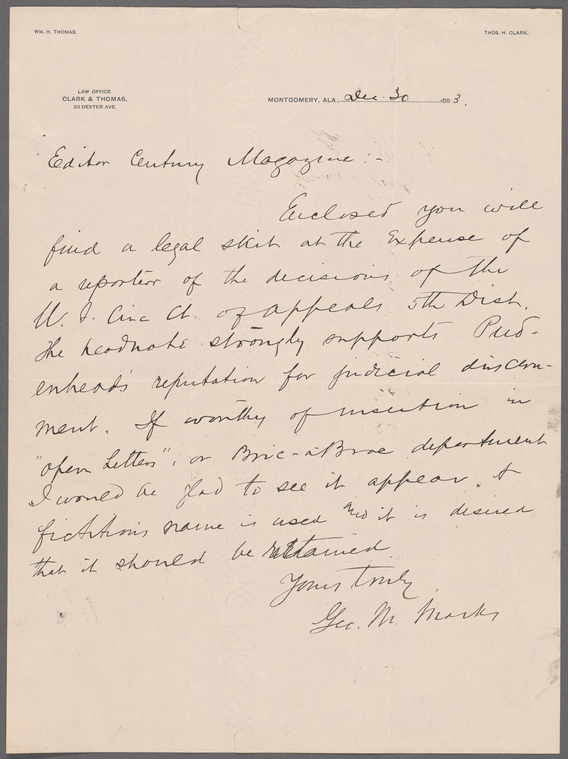 Wm. H. THOMAS.
THOS. H. CLARK.
LAW OFFICE
CLARK & THOMAS,
20 DEXTER AVE.
MONTGOMERY, ALA., Dec. 30 1893.
Editor Century Magazine:-
Enclosed you will
find a legal skit at the expense of
a reporter of the decisions of the
U. S. Circ Ct. of appeals 5th Dist.
The headnote strongly supports Pud-
enhead's reputation for judicial discern-
ment. If worthy of insertion in
"open Letters", or Bric-a-Brac department
I would be glad to see it appear. A
fictitious name is used and it is desired
that it should be retained.
Yours truly
Geo. M. Marks